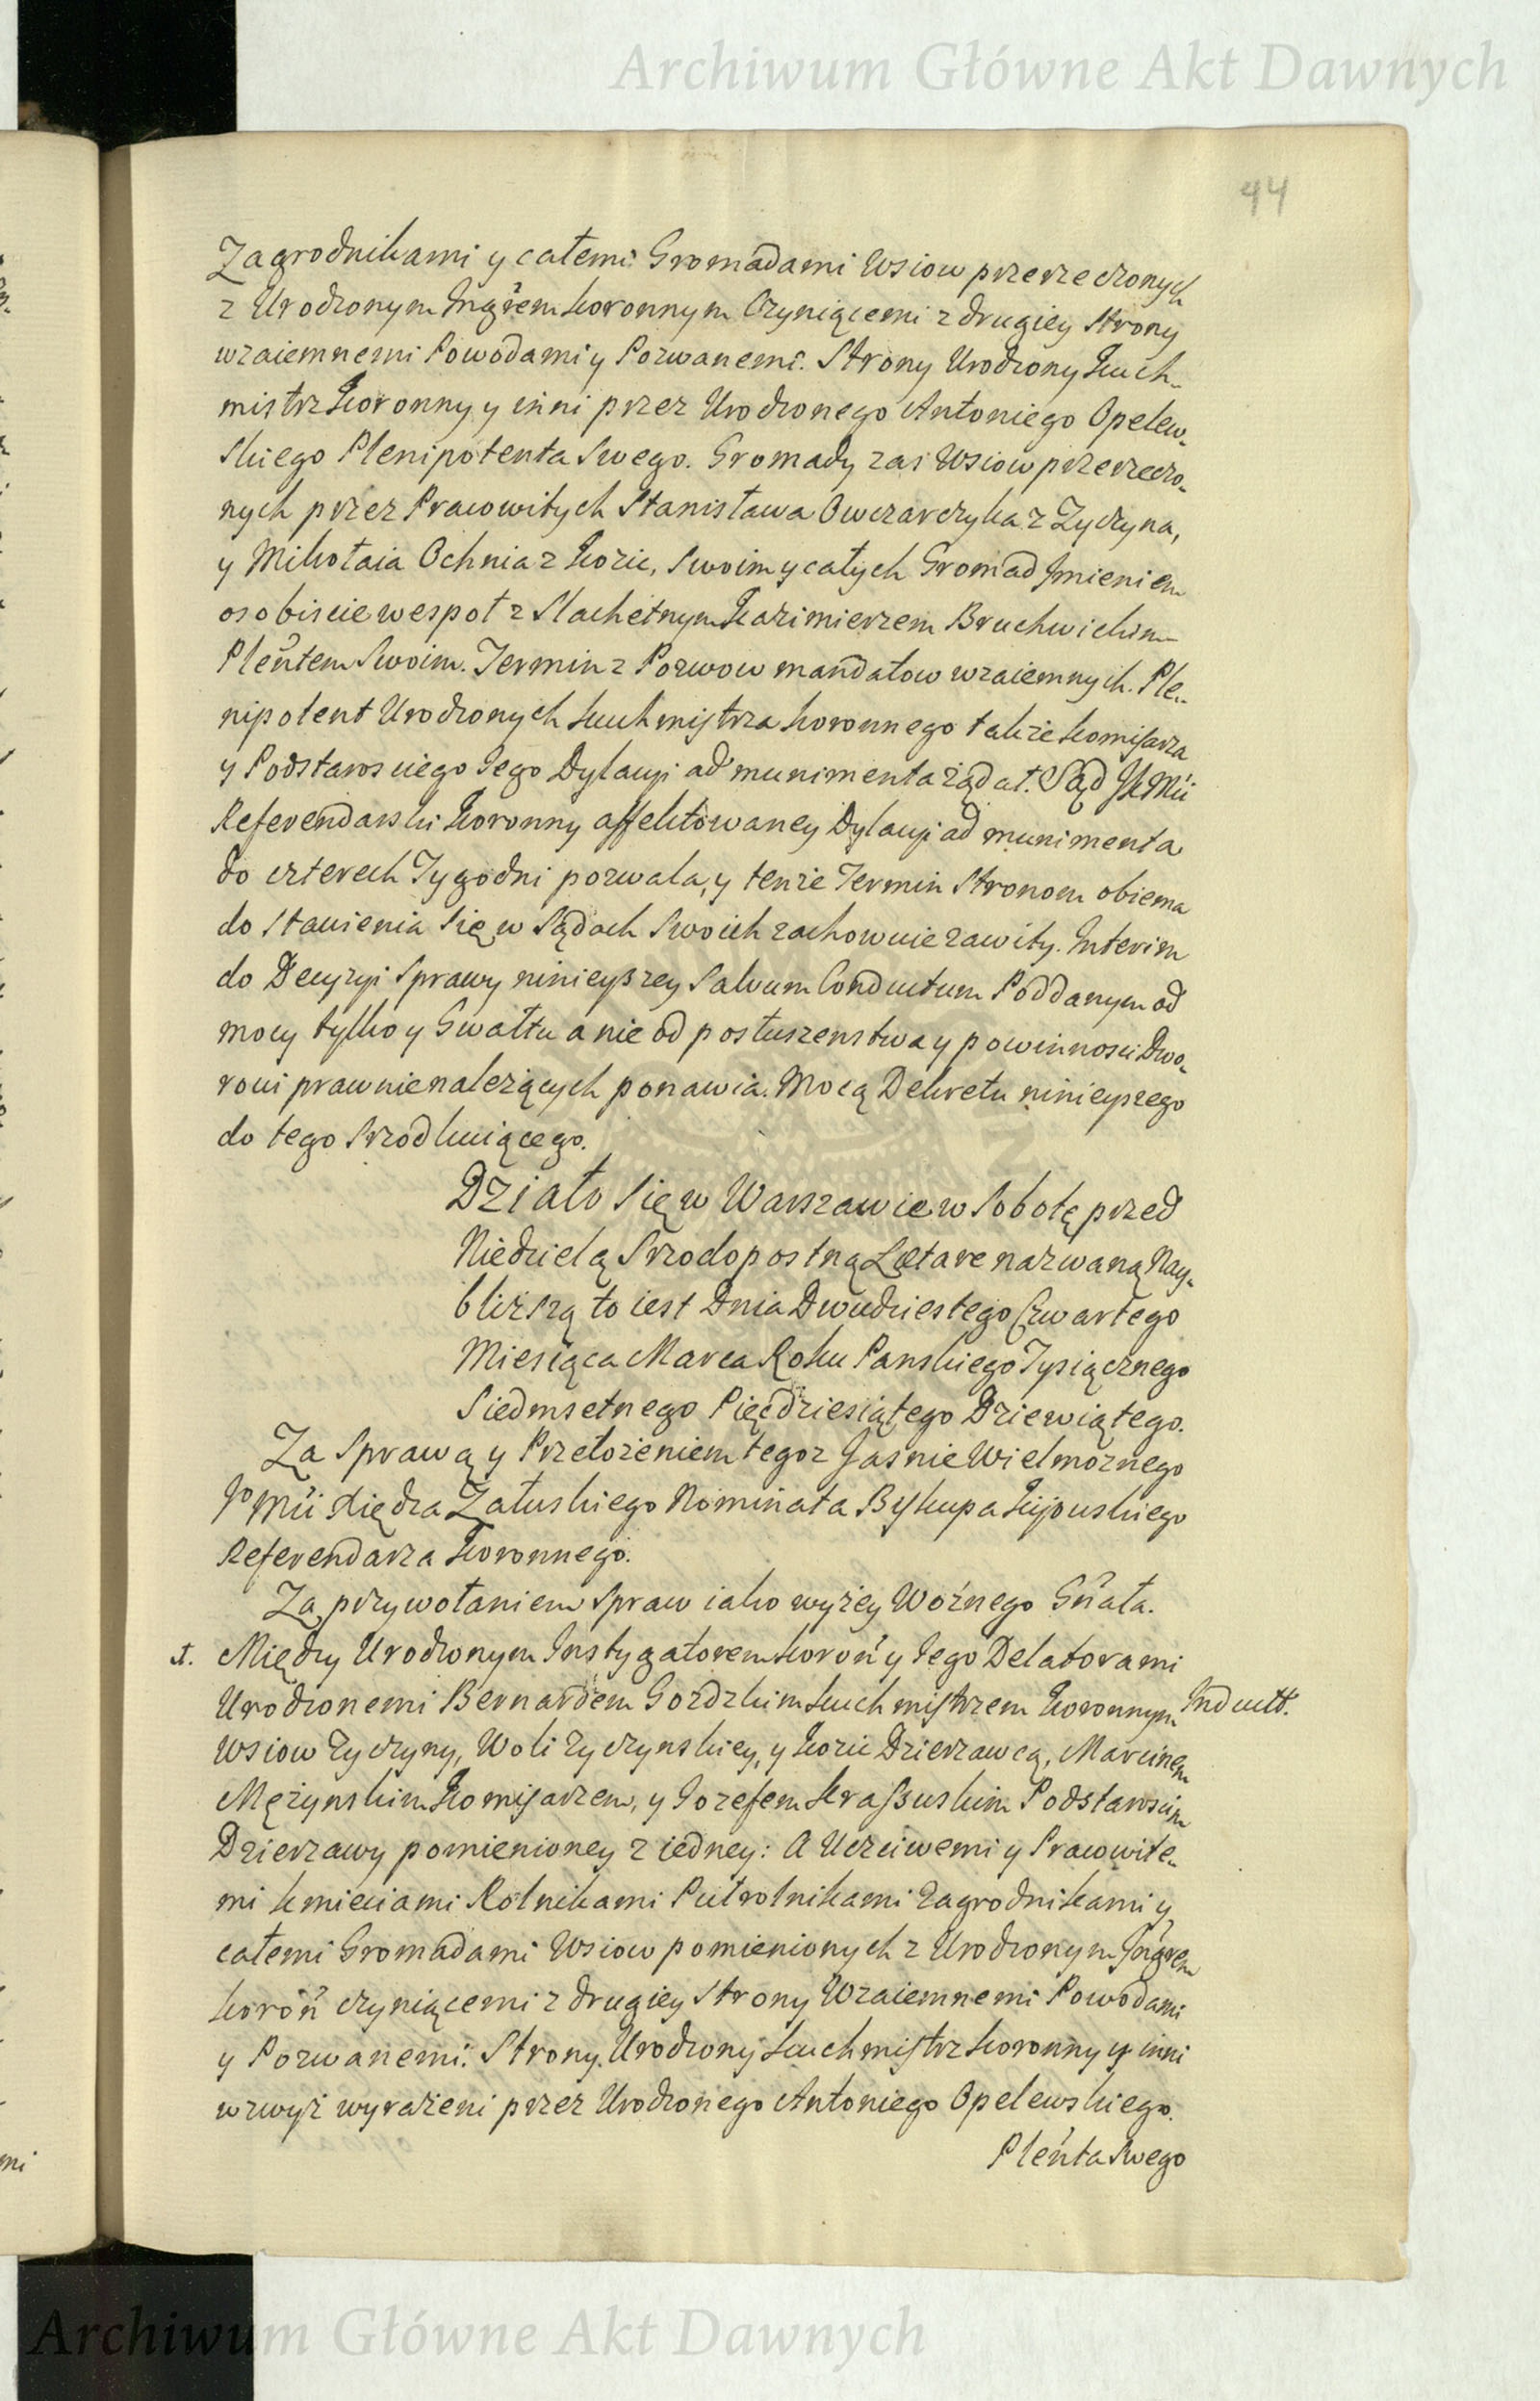 Archiwum Główne Akt Dawnych
44
Zagrodnikami y całemi Gromadami Wsiow przerzeczonych
z Urodzonym Ingrem Koronnym Czyniącemi z drugiey Strony
wzaiemnemi Powodami y Pozwanemi. Strony Urodzony Kuch-
mistrz Koronny y inni przez Urodzonego Antoniego Opelew-
skiego Plenipotenta Swego. Gromady zas Wsiow przerzeczo-
nych przez Pracowitych Stanisława Owczarczyka z Zyczyna,
y Mikołaia Ochnia z Kozic, Swoim y całych Gromad Imieniem
osobiscie wespoł z Slachetnym Kazimierzem Bruchwickim
Pleñtem Swoim. Termin z Pozwow mandatow wzaiemnych. Ple-
nipotent Urodzonych Kuchmistrza Koronnego także Komisarza
y Podstarosciego Jego Dylacyi ad munimenta żądał. Sąd JKMci
Referendarski Koronny affektowaney Dylacyi ad munimenta
do czterech Tygodni pozwala, y tenże Termin Stronom obiema
do Stawienia Się w Sądach Swoich zachowuie zawity. Interim
do Decyzyi Sprawy ninieyszey Salvum Conductum Poddanym od
mocy tylko y Gwałtu a nie od posłuszenstwa y powinnosci Dwo-
rowi prawnie należących ponawia. Mocą Dekretu ninieyszego
do tego Srzodkuiącego.
Działo Się w Warszawie w Sobotę przed
Niedzielą Srzodopostną Lætare nazwaną Nay-
bliższą to iest Dnia Dwudziestego Czwartego
Miesiąca Marca Roku Panskiego Tysiącznego
Siedmsetnego Pięcdziesiątego Dziewiątego.
Za Sprawą y Przełożeniem tegoz Jasnie Wielmoznego
Jo Mci Xiędza Załuskiego Nominata Biskupa Kijowskiego
Referendarza Koronnego.
Za przywołaniem Spraw iako wyżey Woźnego Gñała.
1. Między Urodzonym Instygatorem Koroñ y Jego Delatorami
Urodzonemi Bernardem Gozdzkim Kuchmistrzem Koronnym Inductt.
Wsiow Zyczyny, Woli Zyczynskiey, y Kozic Dzierzawcą, Marcinem
Mężynskim Komisarzem, y Jozefem Kraszuskim Podstaroscim
Dzierzawy pomienioney z iedney: A Uczciwemi y Pracowite-
mi Kmieciami Rolnikami Pułrolnikami Zagrodnikami y
całemi Gromadami Wsiow pomienionych z Urodzonym Ingrem
Koroñ czyniącemi z drugiey Strony Wzaiemnemi Powodami
y Pozwanemi. Strony Urodzony Kuchmistrz Koronny y inni
wzwyż wyrażeni przez Urodzonego Antoniego Opelewskiego.
Pleñta Swego
Archiwum Główne Akt Dawnych